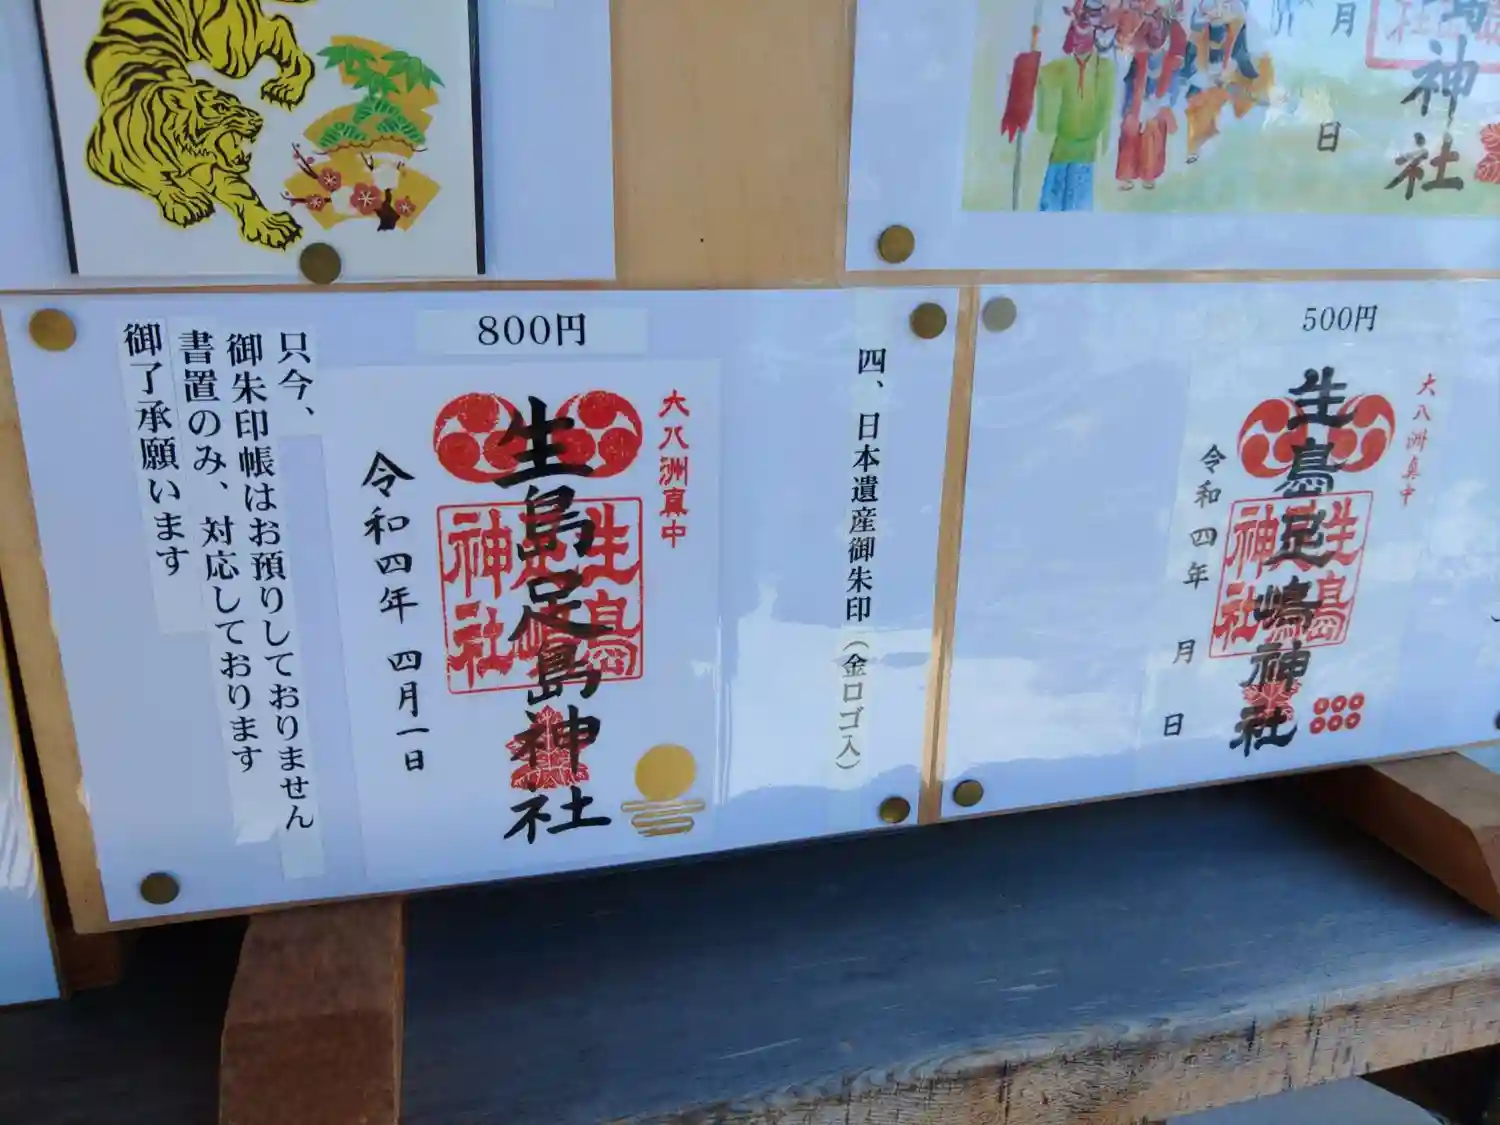 月
日
神社
500円
大八洲真中
生島足嶋神社
生島足嶋神社
令和四年
月
日
四、日本遺産御朱印（金ロゴ入）
800円
大八洲真中
生島足島神社
生島足嶋神社
令和四年 四月一日
只今、
御朱印帳はお預りしておりません
書置のみ、対応しております
御了承願います